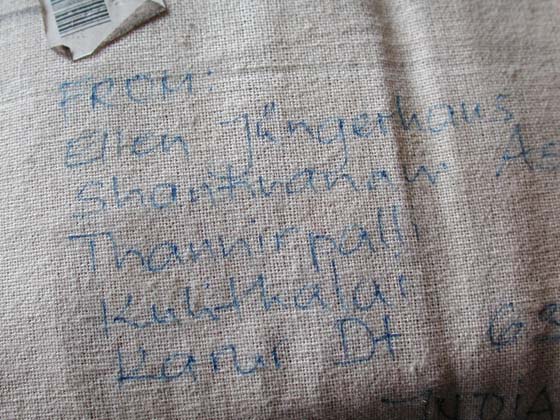 FROM:
Ellen Jüngerhaus
Shantivanam As
Thannirpalli
Kulithalai
Karur Dt 63
INDIA